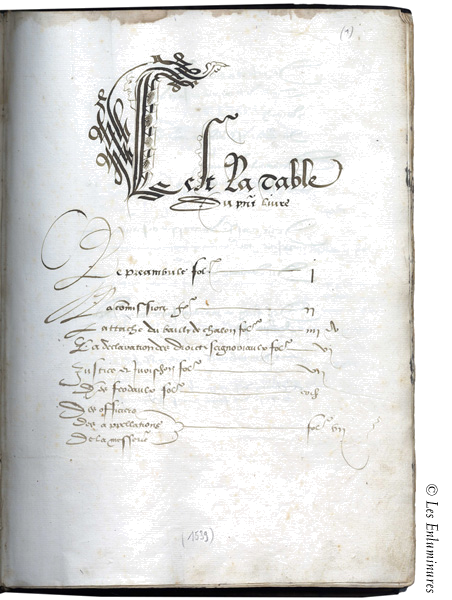 (1)
C est La Table
Du pnt livre
Le preambule fol
La comission fol
Lattache du bailli de chalon fol iiii
La declaration des droictz seignoriaulx fol vi
Justice et Jurisdion fol vii
Des feodaulx fol
Des officiers
Des appellations fol vii
De la messerie
(1539)
© Les Enluminures